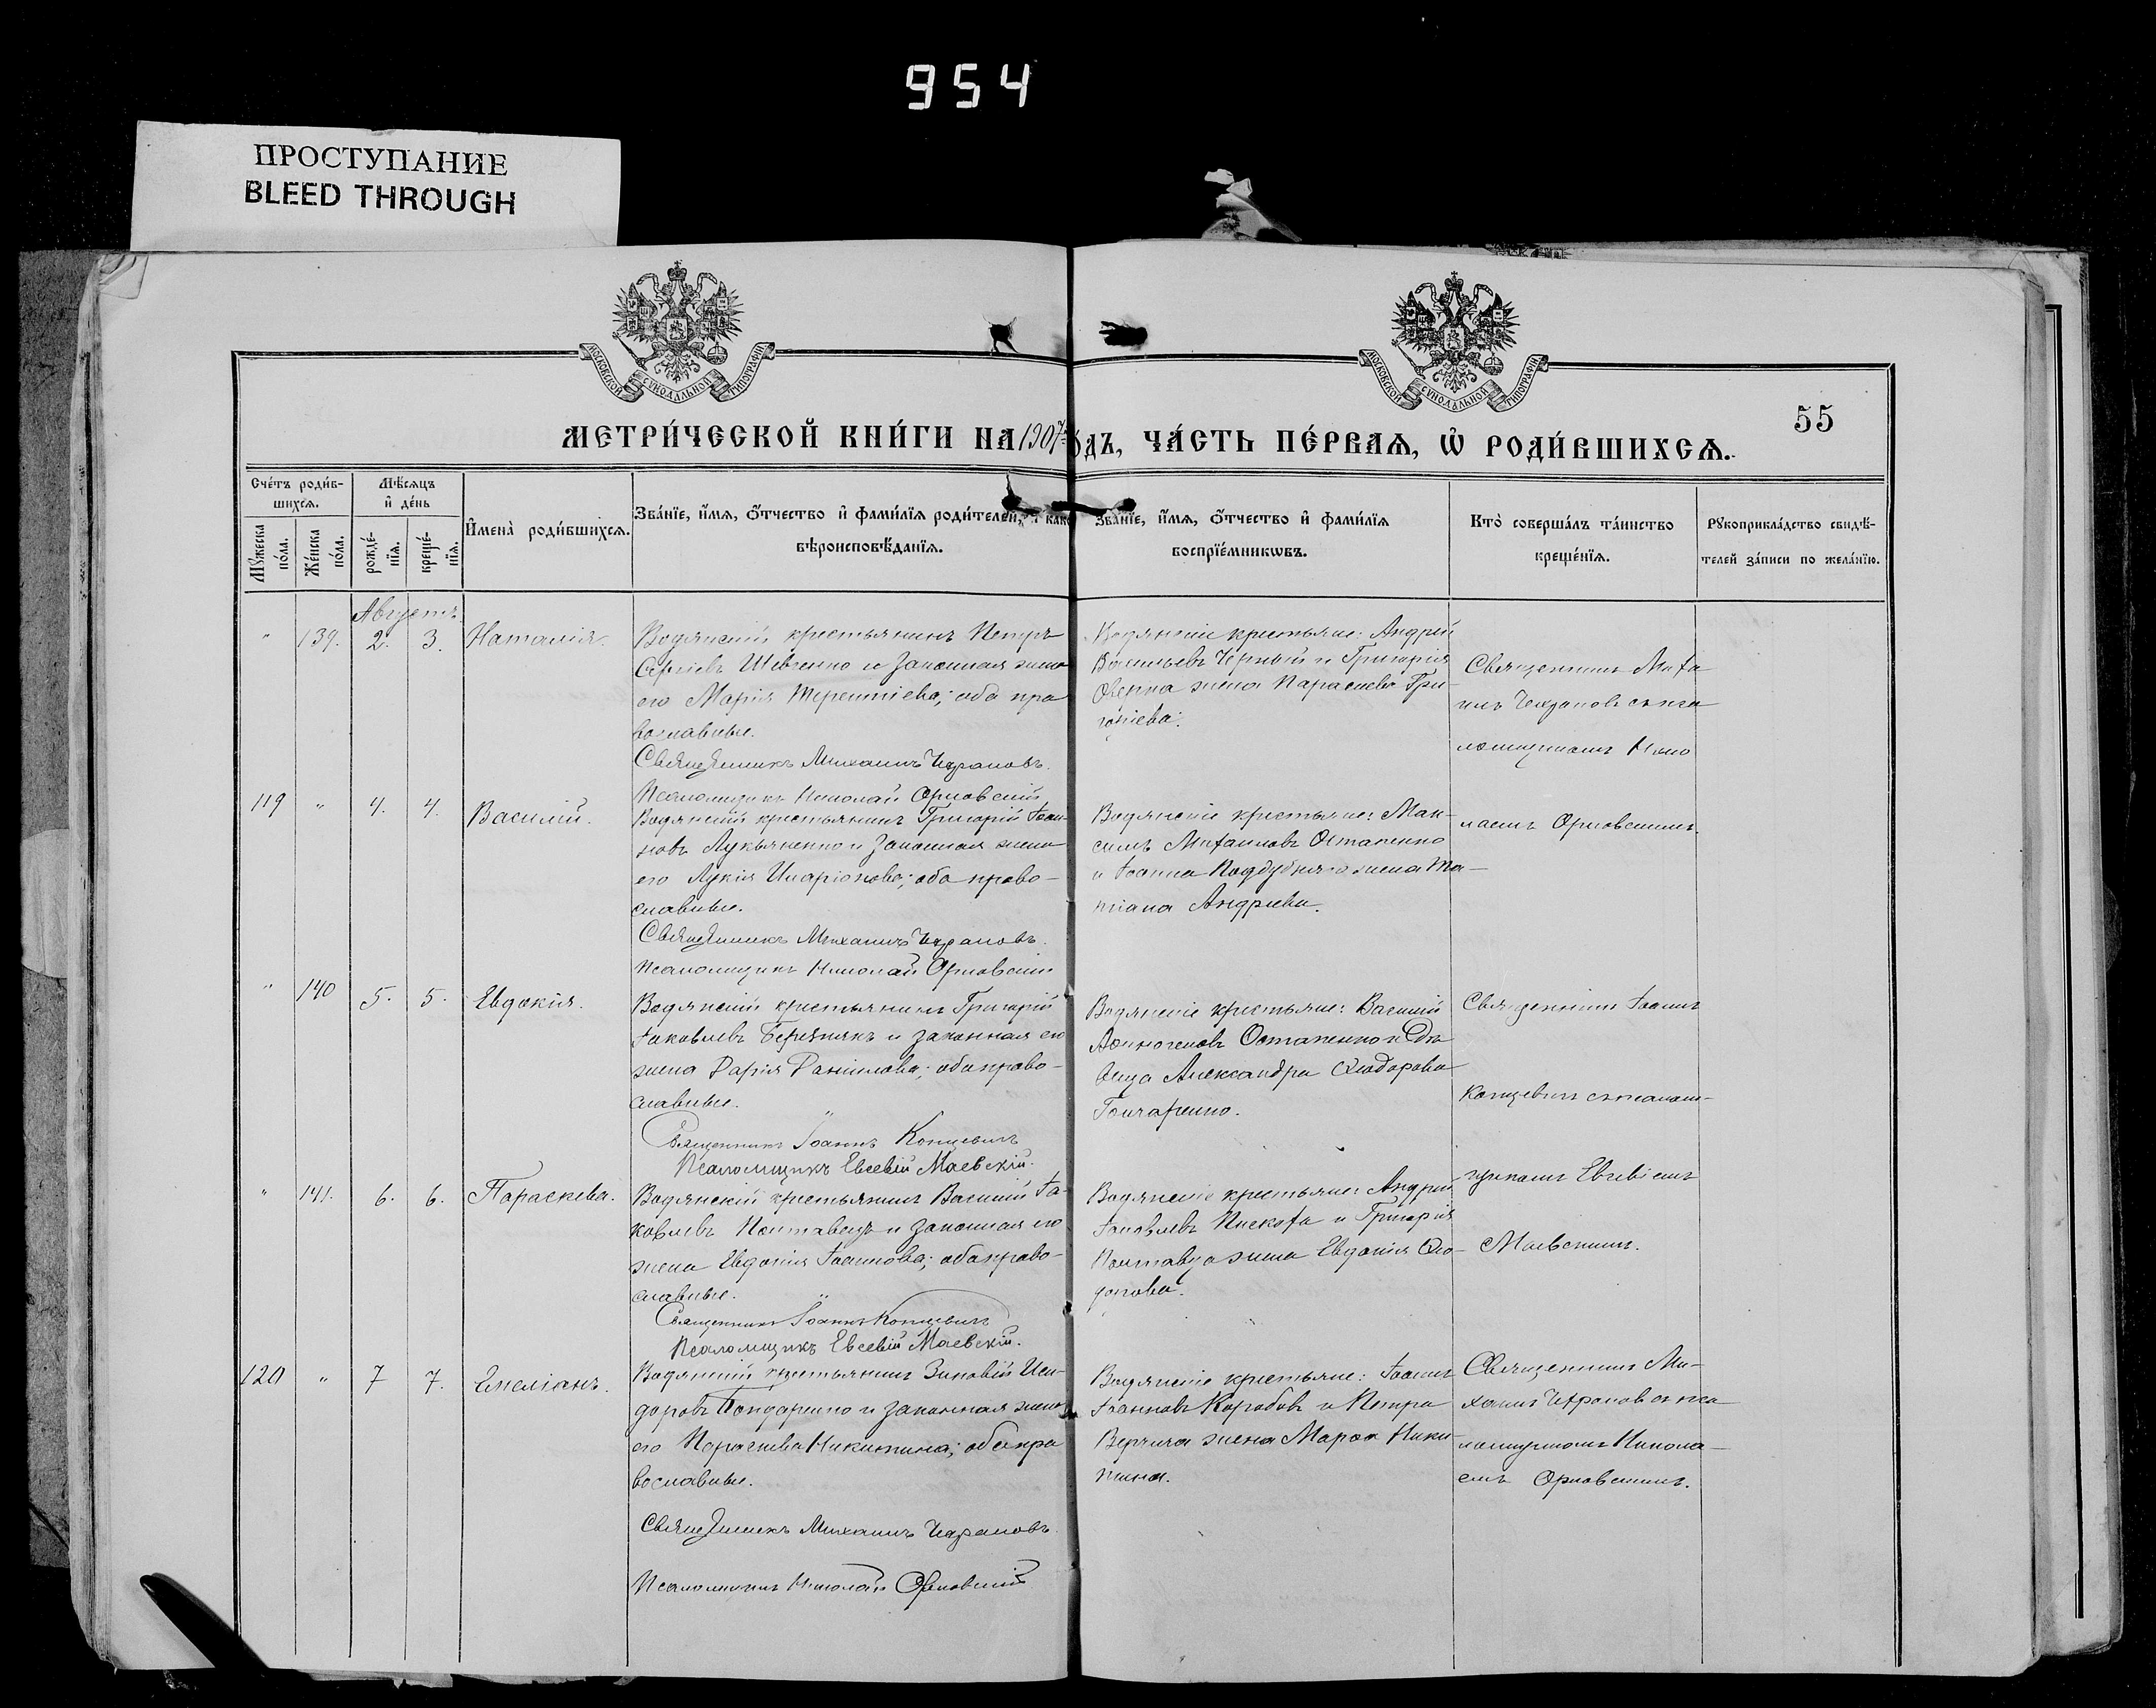 954
ПРОСТУПАНИЕ
BLEED THROUGH
МОСКОВСКОЙ СѴНОДАЛЬНОЙ ТИПОГРАФІИ
МОСКОВСКОЙ СѴНОДАЛЬНОЙ ТИПОГРАФІИ
55
МЕТРИ́ЧЕСКОЙ КНИ́ГИ НА 1907 ГО́ДЪ, ЧА́СТЬ ПЕ́РВАѦ, Ѡ҆ РОДИ́ВШИХСѦ.
Сче́тъ роди́в-
шихсѧ.
Мꙋ́жеска по́ла.
Же́нска по́ла.
Мѣ́сѧцъ
и҆ де́нь
рожде́-
нїѧ.
креще́-
нїѧ.
И҆мена̀ роди́вшихсѧ.
Зва́нїе, и҆́мѧ, ѻ҆́тчество и҆ фами́лїѧ роди́телей, и҆ како
вѣроисповѣ́данїѧ.
Зва́нїе, и҆́мѧ, ѻ҆́тчество и҆ фами́лїѧ
воспрїе́мникѡвъ.
Кто̀ соверша́лъ та́инство
креще́нїѧ.
Рꙋкоприкла́дство свидѣ́-
телей за́писи по жела́нїю.
Августъ
" 139. 2. 3. Наталія.
Водянскій крестьянинъ Петръ
Сергіевъ Шевченко и законная жена
его Марія Терентіева; оба пра
вославные.
Священникъ Михаилъ
Псаломщикъ Николай Орловскій
Водянскіе крестьяне: Андрей
Васильевъ Черный и Григорія
жена Параскева Гри-
горіева.
Священникъ Миха
илъ съ пса
ломщикомъ Нико
лаемъ Орловскимъ.
119 " 4. 4. Василій.
Водянскій крестьянинъ Григорій Іоан-
новъ Лукьяненко и законная жена
его Лукія Иларіонова; оба право-
славные.
Священникъ Михаилъ
Псаломщикъ Николай Орловскій
Водянскіе крестьяне: Мак-
симъ Михаиловъ Остапенко
и Іоанна Поддубняго жена Та-
тіана Андреева.
" 140 5. 5. Евдокія.
Водянскій крестьянинъ Григорій
Іаковлевъ Березнякъ и законная его
жена Дарія Даніилова; оба право-
славные.
Священникъ Іоаннъ Концевичъ
Псаломщикъ Евсевій Маевскій.
Водянскіе крестьяне: Василій
Аѳиногеновъ Остапенко и Дѣ
вица Александра Ѳеодорова
Гончаренко.
Священникъ Іоаннъ
Концевичъ съ псалом-
щикомъ Евсевіемъ
Маевскимъ.
" 141. 6. 6. Параскева.
Водянскій крестьянинъ Василій Іа-
ковлевъ Полтавецъ и законная его
жена Евдокія Іоаннова; оба право-
славные.
Священникъ Іоаннъ Концевичъ
Псаломщикъ Евсевій Маевскій.
Водянскіе крестьяне: Андрей
Іаковлевъ и Григорія
Полтавца жена Евдокія Ѳео-
дорова.
120 " 7 7. Емеліанъ.
Водянскій крестьянинъ Зиновій Иси-
доровъ Бондаренко и законная жена
его Параскева Никитина; оба пра
вославные.
Священникъ Михаилъ
Псаломщикъ Николай Орловскій
Водянскіе крестьяне: Іоаннъ
Іоанновъ Коробовъ и Петра
жена Марѳа Ники-
тина.
Священникъ Ми-
хаилъ съ пса
ломщикомъ Никола-
емъ Орловскимъ.